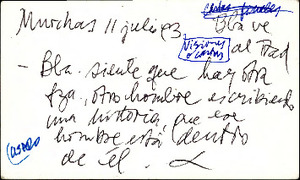 Muchas 11 julio 93.
Bba ve
Visiones
o cartas
al trad
- Bba. siente que hay otra
fza, otro hombre escribiendo
una historia, que ese
hombre está dentro
de él.
casado